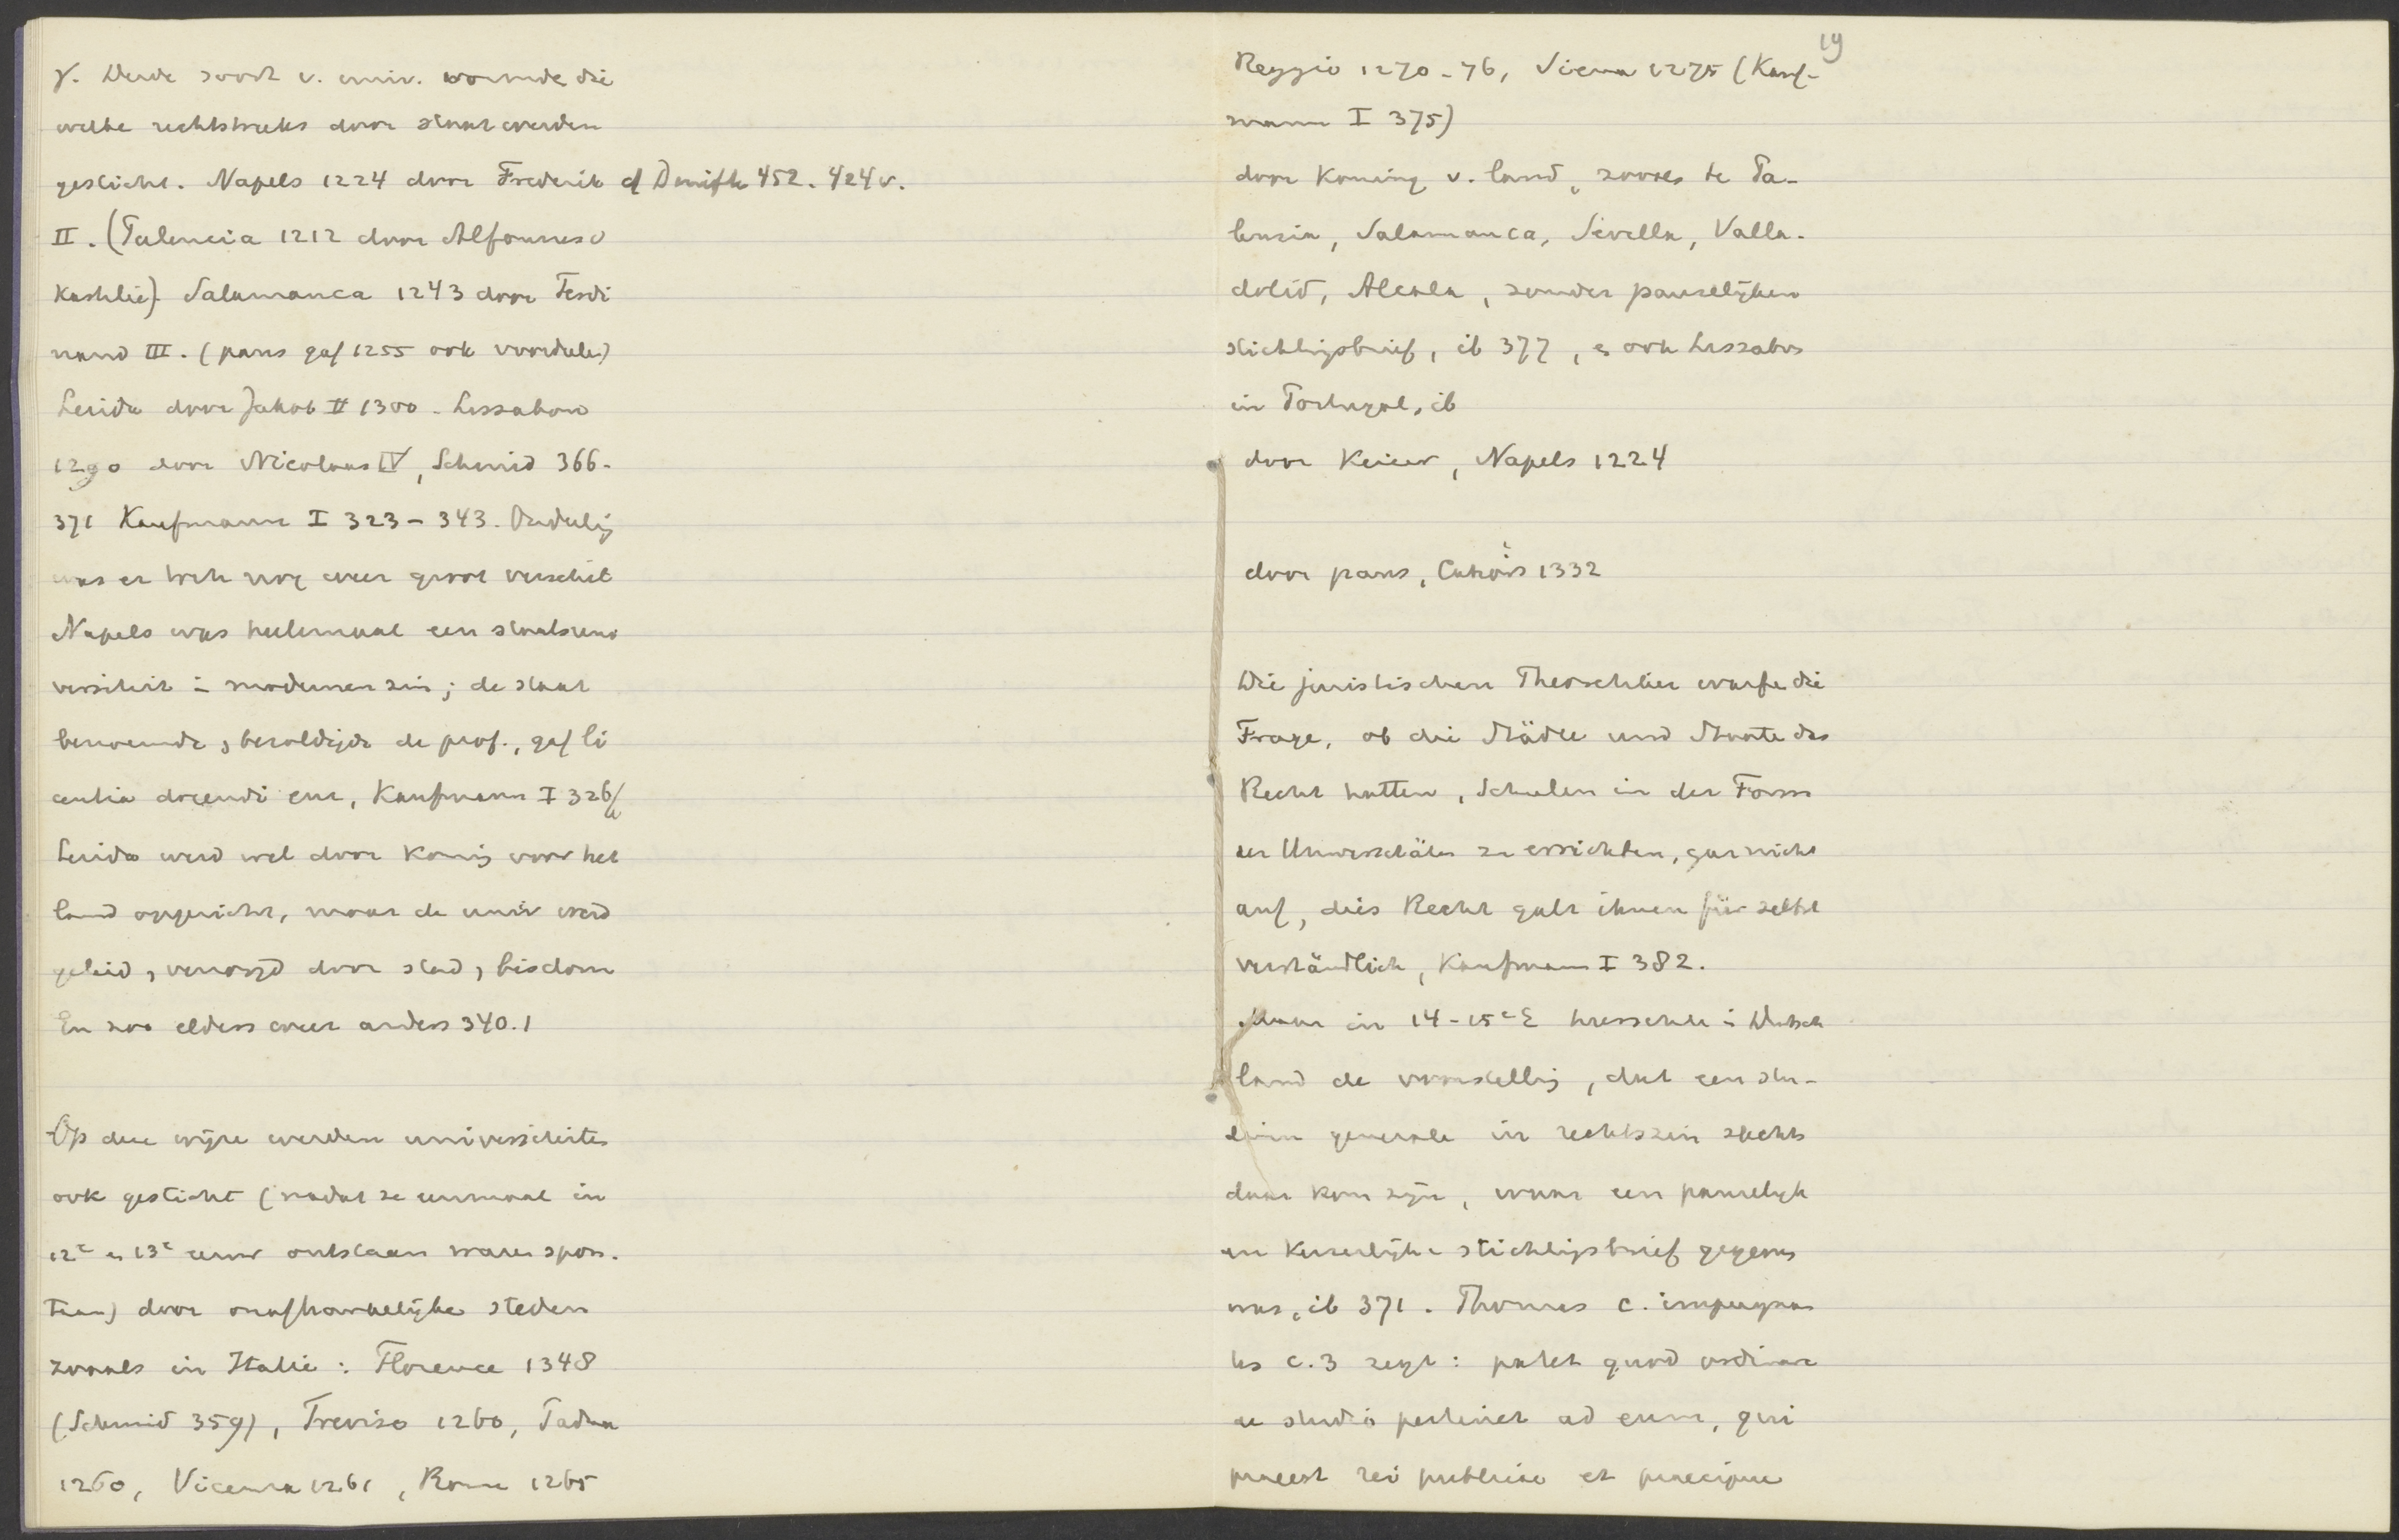 γ. Derde soort v. univ. vormde die
welke rechtstreeks door staat werden
gesticht. Napels 1224 door Frederik cf Denifle 452. 424 v.
II. (Palencia 1212 door Alfonnes v
Kastilië). Salamanca 1243 door Ferdi
nand III. (paus gaf 1255 ook voordeelen)
Lerida door Jakob II 1300 - Lissabon
1290 door Nicolaas IV, Schmid 366-
371 Kaufmann I 323-343. Onderling
was er toch nog weer groot verschil
Napels was heelemaal een staatsuni
versiteit in modernen zin; de staat
benoemde, bezoldigde de prof., gaf li
centia docendi enz, Kaufmann I 326/
Lerida werd wel door koning voor het
land opgericht, maar de univ werd
geleid, verzorgd door stad, bisdom
En zoo elders weer anders 340.1
Op deze wijze werden universiteiten
ook gesticht (nadat ze eenmaal in
12e en 13e eeuw ontstaan waren spon-
taan) door onafhankelijke steden
zooals in Italie: Florence 1348
(Schmid 359), Treviso 1260, Padua
1260, Vicenza 1261, Rome 1265
19
Reggio 1270-76, Siena 1275 (Kauf-
mann I 375)
door koning v. land, zooals te Pa-
lencia, Salamanca, Sevilla, Valla-
dolid, Alcala, zonder pauselijken
stichtingsbrief, ib 377, en ook Lissabon
in Portugal, ib
door Keizer, Napels 1224
door paus, Cahors 1332
Die juristischen Theoretiker warfen die
Frage, ob die Städte und Staaten das
Recht hatten, Schulen in der Form
der Universitäten zu errichten, gar nicht
auf, dies Recht galt ihnen für selbst
verständlich, Kaufmann I 382.
Maar in 14-15e E heerschte in Duitsch
land de voorstelling, dat een stu-
dium generale in rechtszin slechts
daar kon zijn, waar een pauselijk
en keizerlijke stichtingsbrief gegeven
was, ib 371. Thomas c. impugnan
tes c. 3 zegt: patet quod ordinare
de studio pertinet ad eum, qui
praeest rei publicae et praecipue